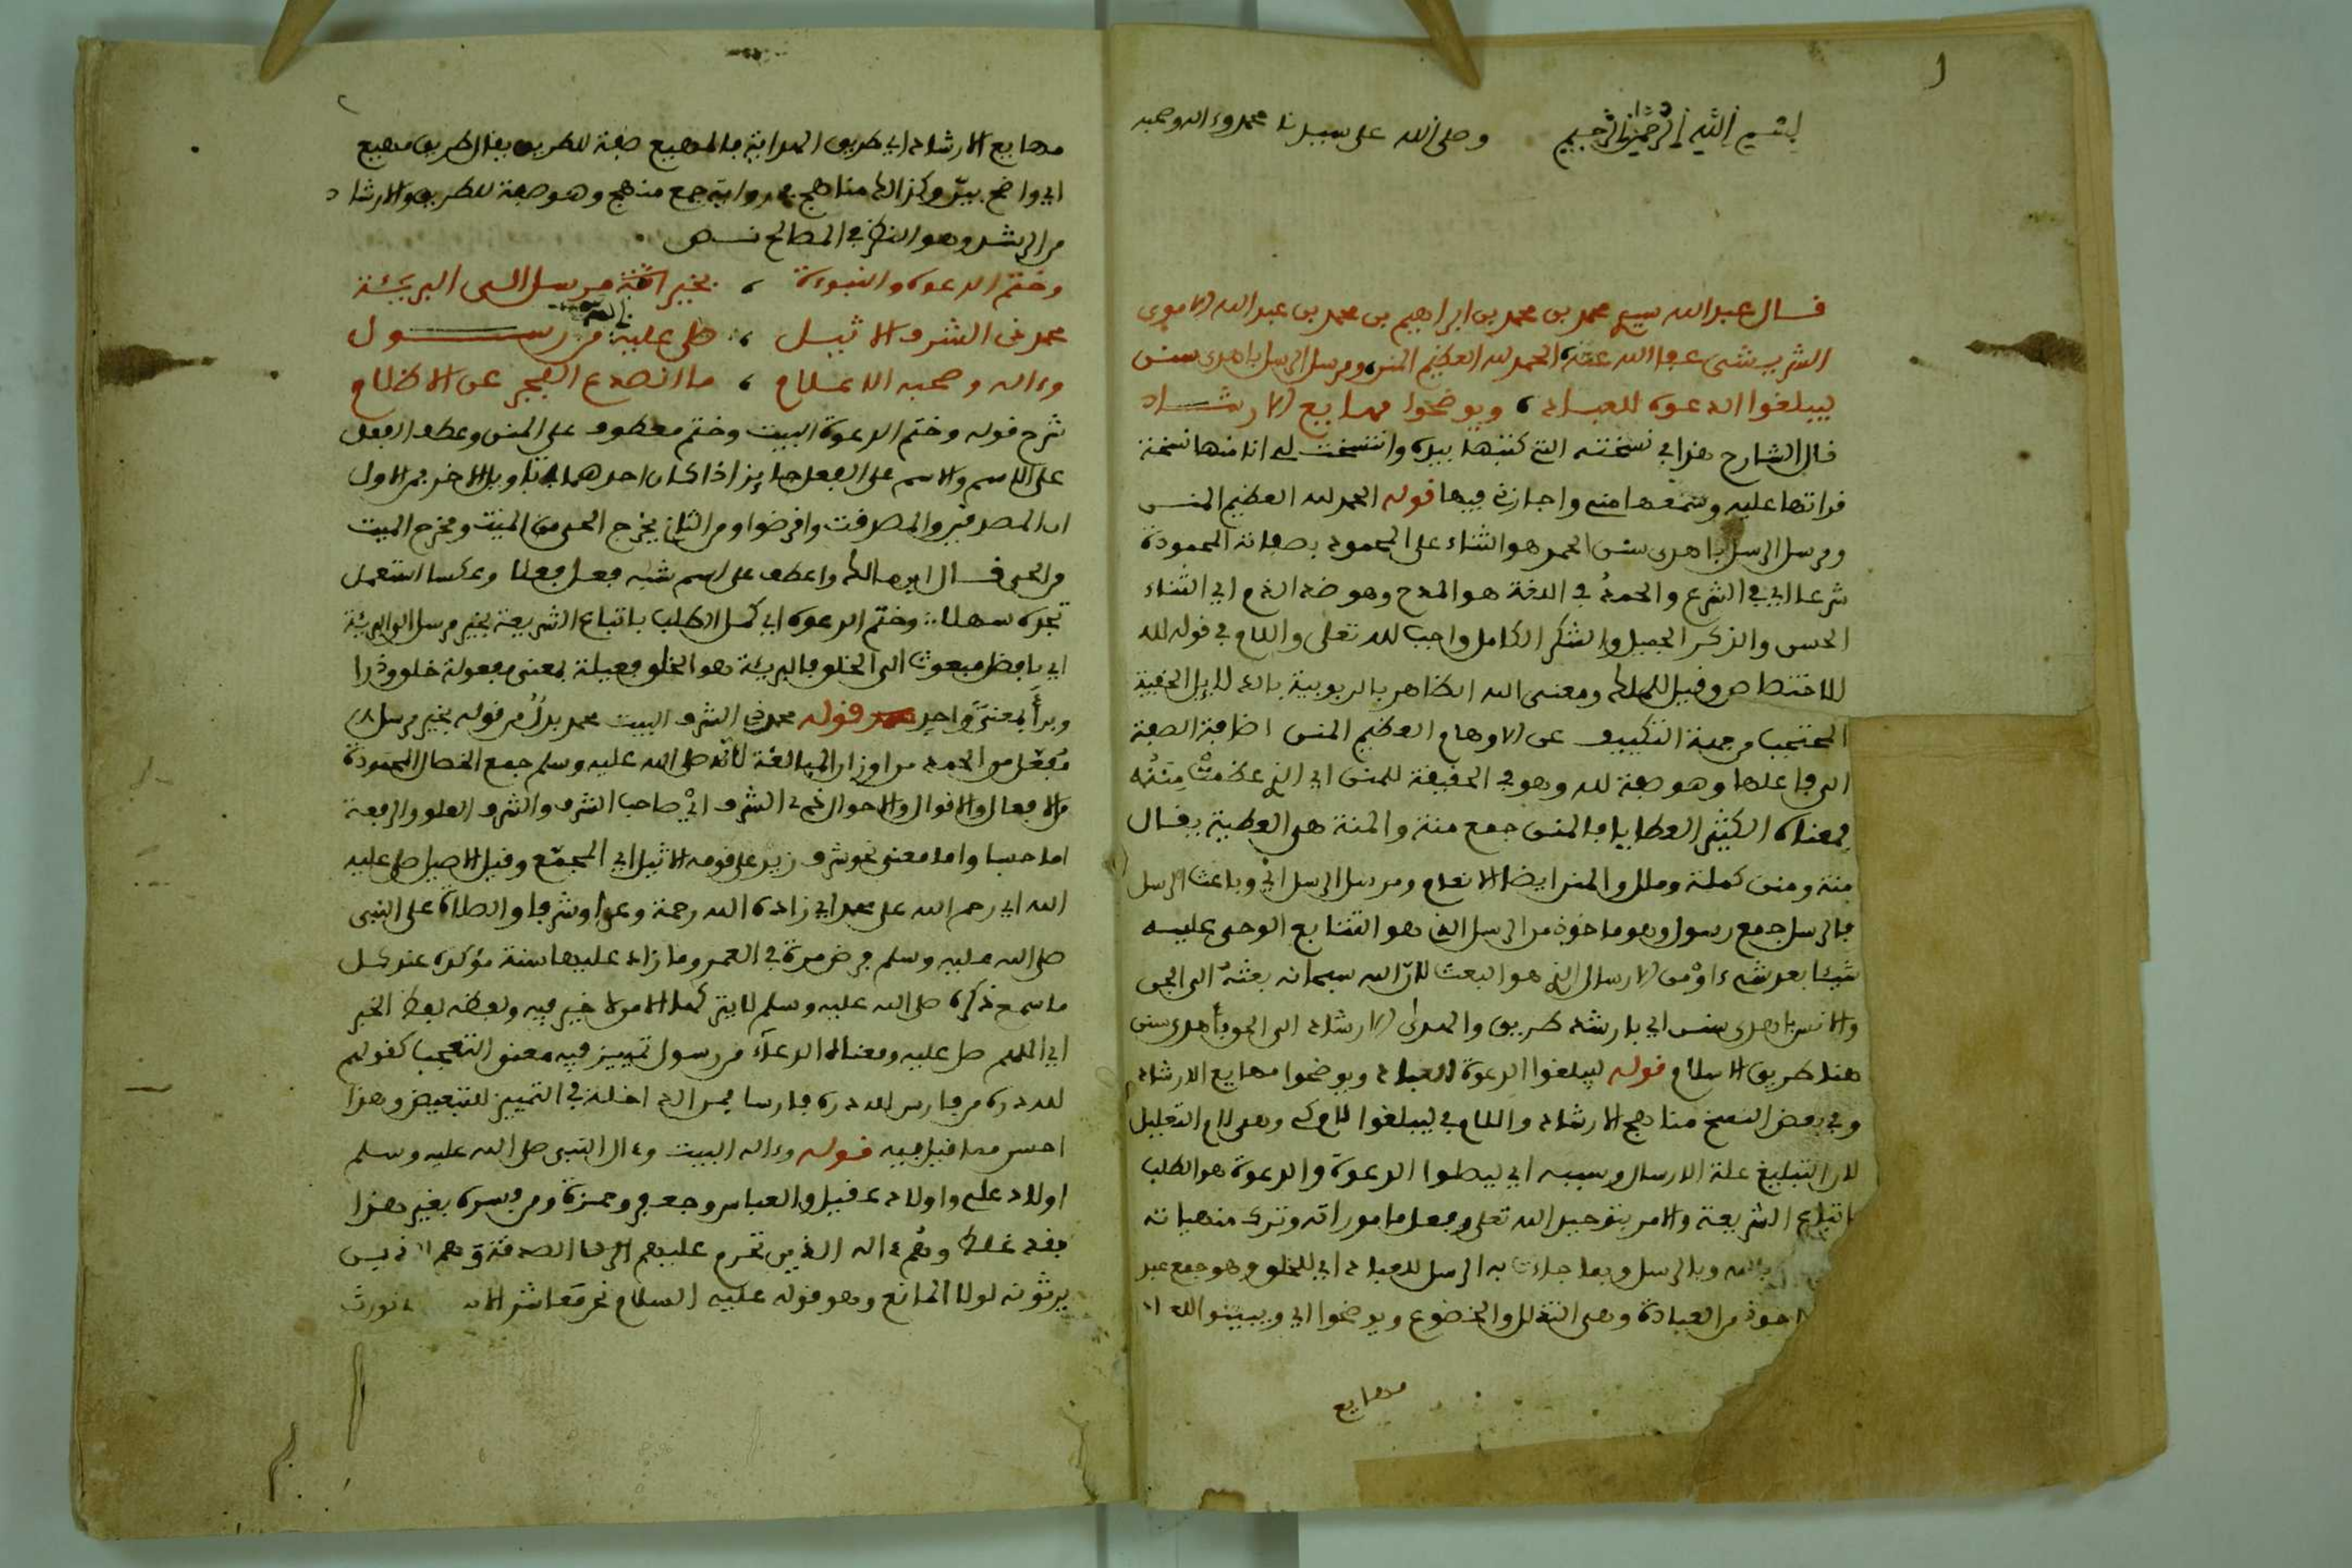 بسم الله الرحمن الرحيم وصلى الله على سيدنا محمد وءاله وصحبه
قال عبد الله محمد بن محمد بن ابراهيم بن محمد بن عبد الله الاموي
الشريشي عفا الله عنه الحمد لله العظيم المنن ومرسل الرسل باهدى سنن
ليبلغوا الدعوة للعباد ، ويوضحوا مهايع الارشاد
قال الشارح هذا في نسخته التي كتبها بيده وانتسخت لي انا منها نسخة
قراتها عليه وسمعها مني واجازني فيها قوله الحمد لله العظيم المنن
ومرسل الرسل باهدى سنن الحمد هو الثناء على المحمود بصفاته المحمودة
شرعا اي في الشرع والحمد في اللغة هو المدح وهو ضد الذم اي الثناء
الحسن والذكر الجميل والشكر الكامل واجب لله تعلى واللام في قوله لله
للاختصاص وقيل للملك ومعنى الله الظاهر بالربوبية بالدلايل الخفية
المحتجب من جهة التكييف عن الاوهام العظيم المنن اضافة الصفة
الى فاعلها وهو صفة لله وهو في الحقيقة للمنن اي الذي عظمت مننه
بمعناه الكثير العطايا فالمنن جمع منة والمنة هي العطية يقال
منة ومنن كملة وملل والمن ايضا الانعام ومرسل الرسل اي وباعث الرسل
فالرسل جمع رسول وهو ماخوذ من الرسل الذي هو التتابع الوحي عليه
شيئا بعد شيء او من الارسال الذي هو البعث لان الله سبحانه بعثه الى الجن
والانس باهدى سنن اي بارشد طريق والهدى الارشاد الى الحق باهدى سنن
هنا طريق الاسلام قوله ليبلغوا الدعوة للعباد ويوضحوا مهايع الارشاد
وفي بعض النسخ مناهج الارشاد واللام في ليبلغوا لام كي وهي لام التعليل
لان التبليغ علة الارسال وسببه اي ليصلوا الدعوة والدعوة هو الطلب
باتباع الشريعة والامر بتوحيد الله تعلى وفعل ماموراته وترك منهياته
بالله وبالرسل وبما جاءت به الرسل للعباد اي للخلق وهو جمع عبد
ماخوذ من العبادة وهي التذلل والخضوع ويوضحوا اي ويبينوا
مهايع
مهايع الارشاد اي طريق الهداية فالمهيع صفة للطريق يقال طريق مهيع
اي واضح بين وكذالك مناهج في رواية جمع منهج وهو صفة للطريق والارشاد
من الرشد وهو النظر في المصالح نص
وختم الدعوة والنبوءة ، بخير مرسل الى البريئة
محمد ذي الشرف الاثيل ، صلى عليه من رسول
وءاله وصحبه الاعلام ، ما انصدع الفجر عن الاظلام
شرح قوله وختم الدعوة البيت وختم معطوف على المنن وعطف الفعل
على الاسم والاسم على الفعل جايز اذا كان احدهما بتاويل الاخر فمن الاول
ان المصدقين والمصدقت واقرضوا ومن الثاني يخرج الحي من الميت ومخرج الميت
من الحي قال ابن مالك واعطف على اسم شبه فعل فعلا وعكسا استعمل
تجده سهلا وختم الدعوة اي كمل الطلب باتباع الشريعة بخير مرسل الى البريئة
اي بافضل مبعوث الى الخلق فالبريئة هو الخلق فعيلة بمعنى مفعولة خلق وذرا
وبرأ بمعنى واحد قوله محمد ذي الشرف البيت محمد بدل من قوله بخير مرسل
مفعل من الحمد من اوزان المبالغة لانه صلى الله عليه وسلم جمع الخصال المحمودة
من الافعال والاقوال والاحوال ذي الشرف اي صاحب الشرف والشرف العلو والرفعة
اما حسا واما معنى نحو شرف زيد على قومه الاثيل اي المجمع وقيل الاصيل صلى عليه
الله اي رحم الله على محمد اي زاده الله رحمة وعزا وشرفا والصلاة على النبي
صلى الله عليه وسلم فرض مرة في العمر وما زاد عليها سنة مؤكدة عند كل
ما سمع ذكره صلى الله عليه وسلم لا يتركها الا من لا خير فيه
اي اللهم صل عليه ومعناه الدعاء من رسول تمييز فيه معنى التعجب كقولهم
لله دره من فارس لله دره فارسا فمن التي اخلة في التمييز للتبعيض وهذا
احسن مما قيل فيه قوله وءاله البيت وءال النبي صلى الله عليه وسلم
اولاد علي واولاد عقيل والعباس وجعفر وحمزة ومن فسره بغير هذا
فقد غلط وهم ءاله الذين تحرم عليهم الصدقة وهم الذين
يرثونه لولا المانع وهو قوله عليه السلام نحن معاشر نورث